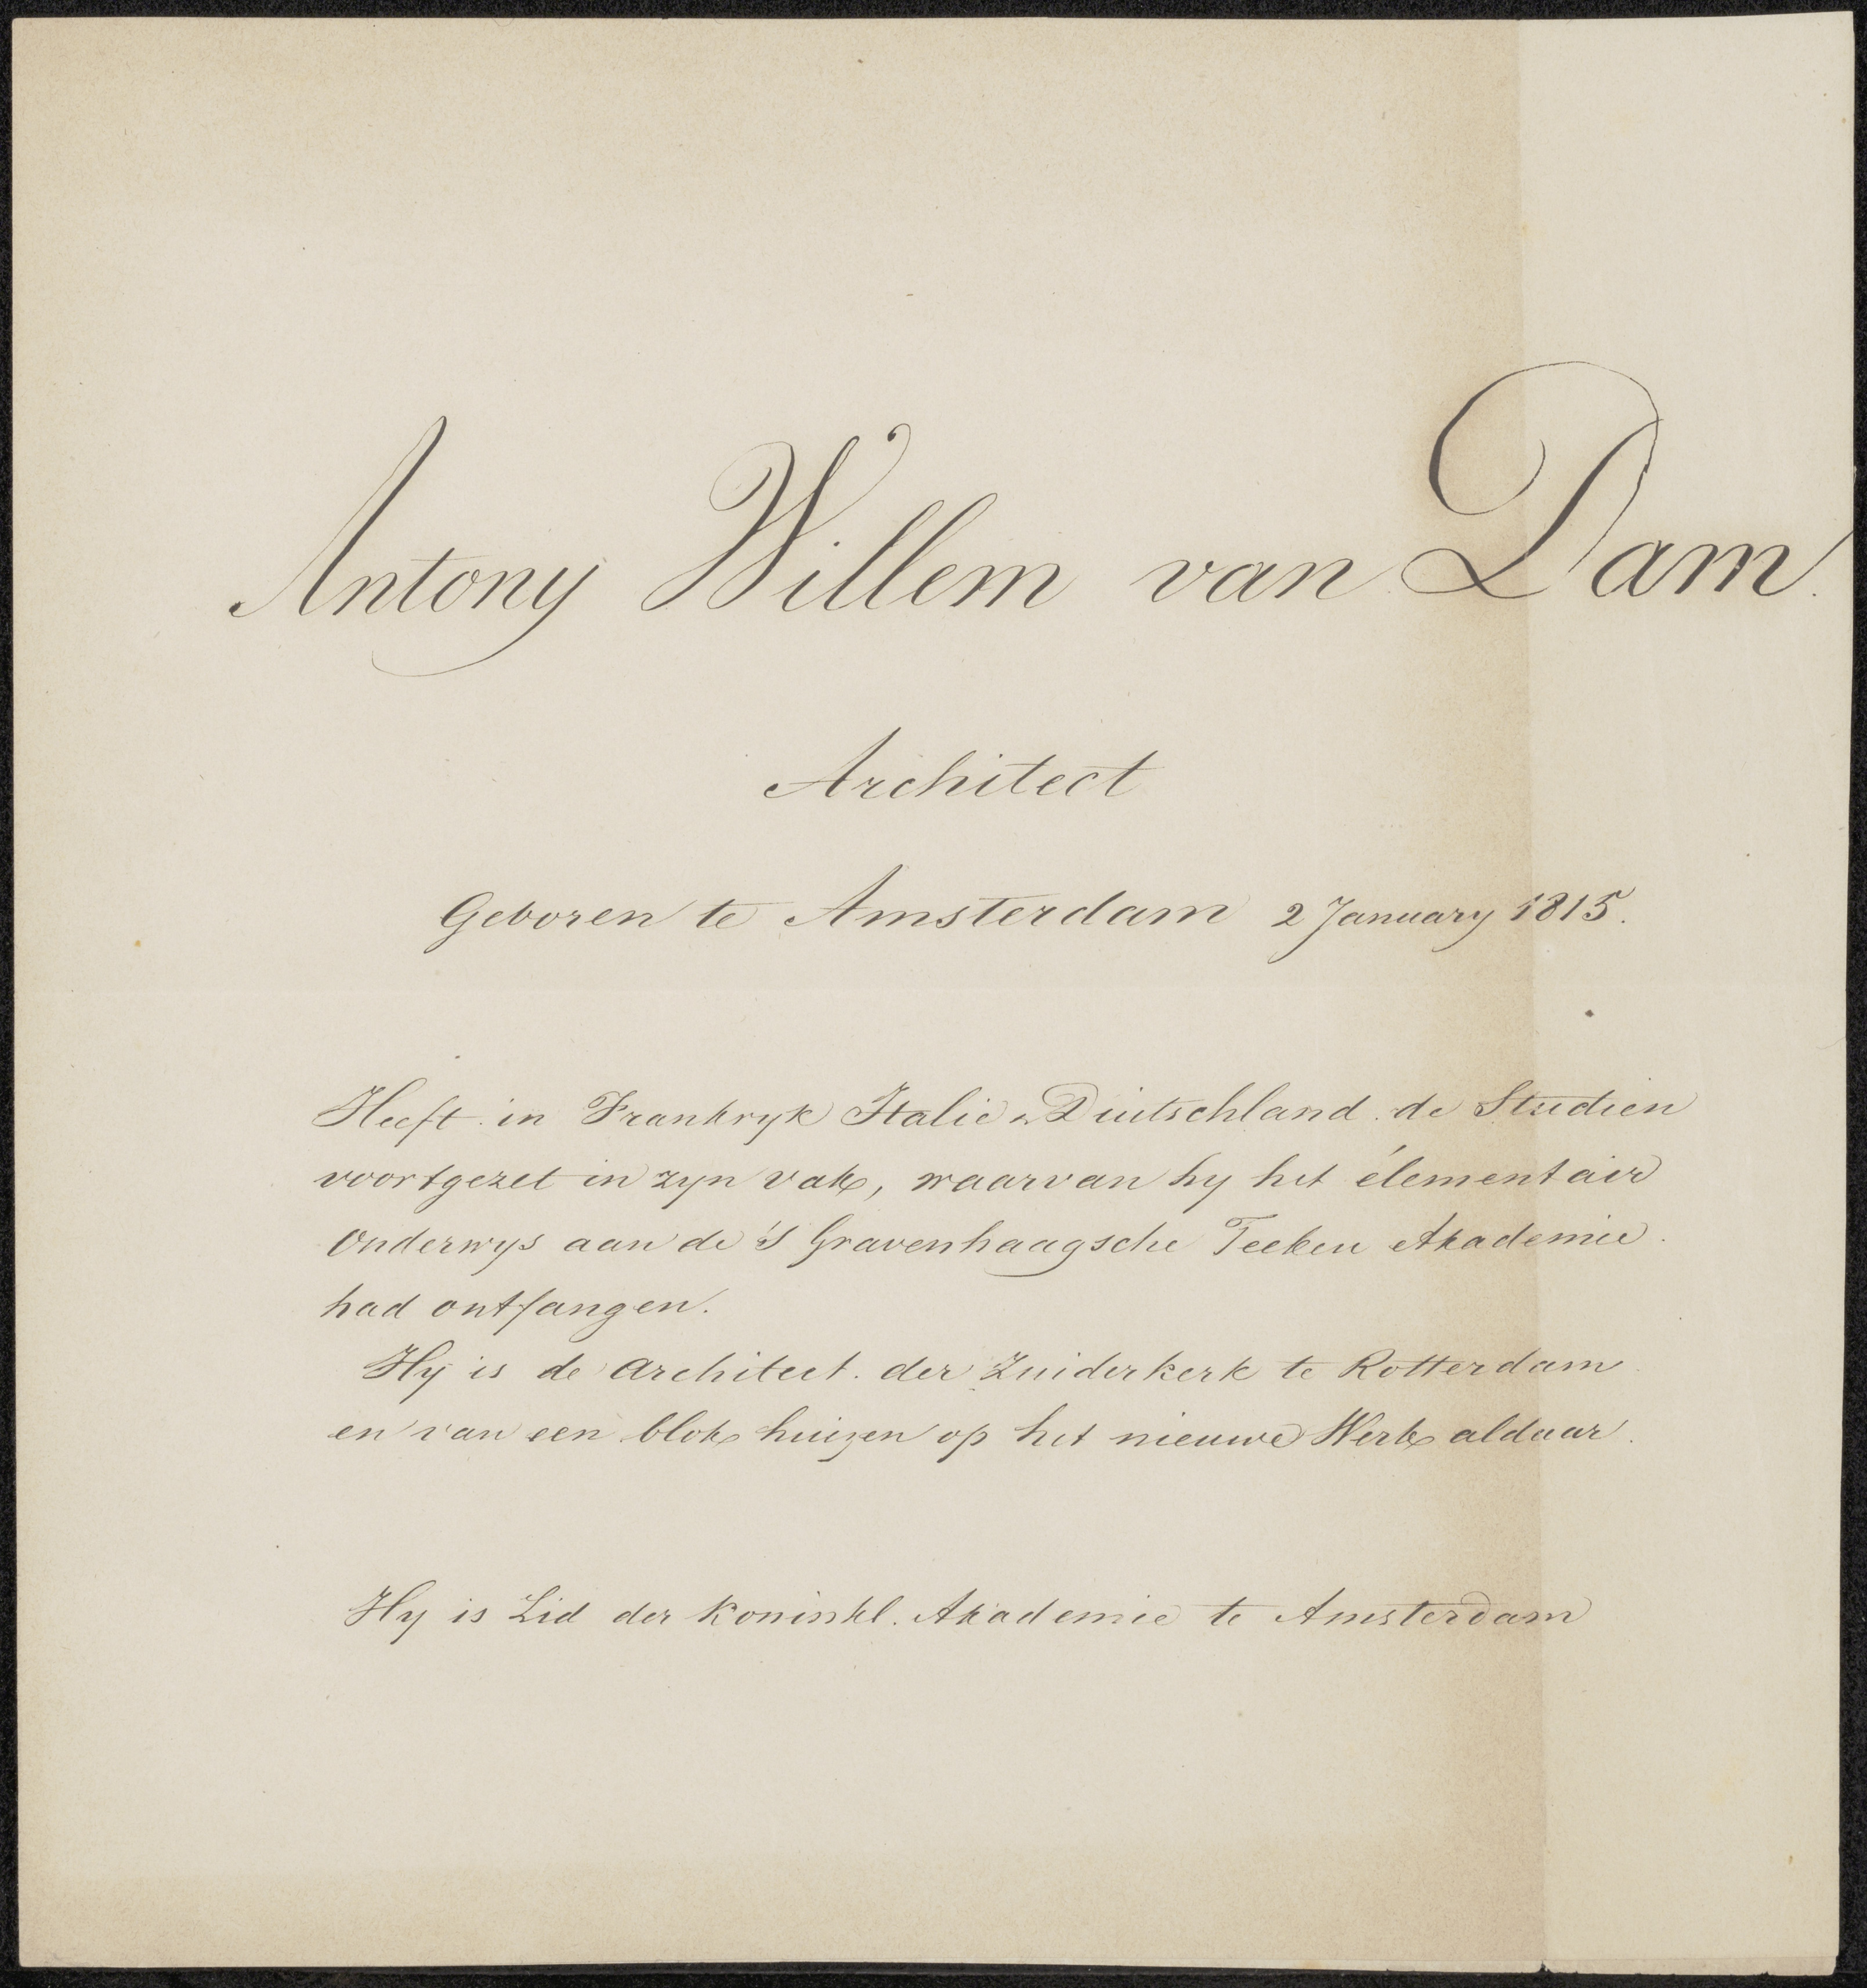 Antony Willem van Dam.
Architect
Geboren te Amsterdam 2 January 1815.
Heeft in Frankryk Italie en Duitschland de Studien
voortgezet in zyn vak, waarvan hy het élementair
Onderwys aan de 's Gravenhaagsche Teeken Akademie
had ontfangen.
Hy is de Architect der Zuiderkerk te Rotterdam
en van een blok huizen op het nieuwe Werk aldaar.
Hy is Lid der Koninkl. Akademie te Amsterdam